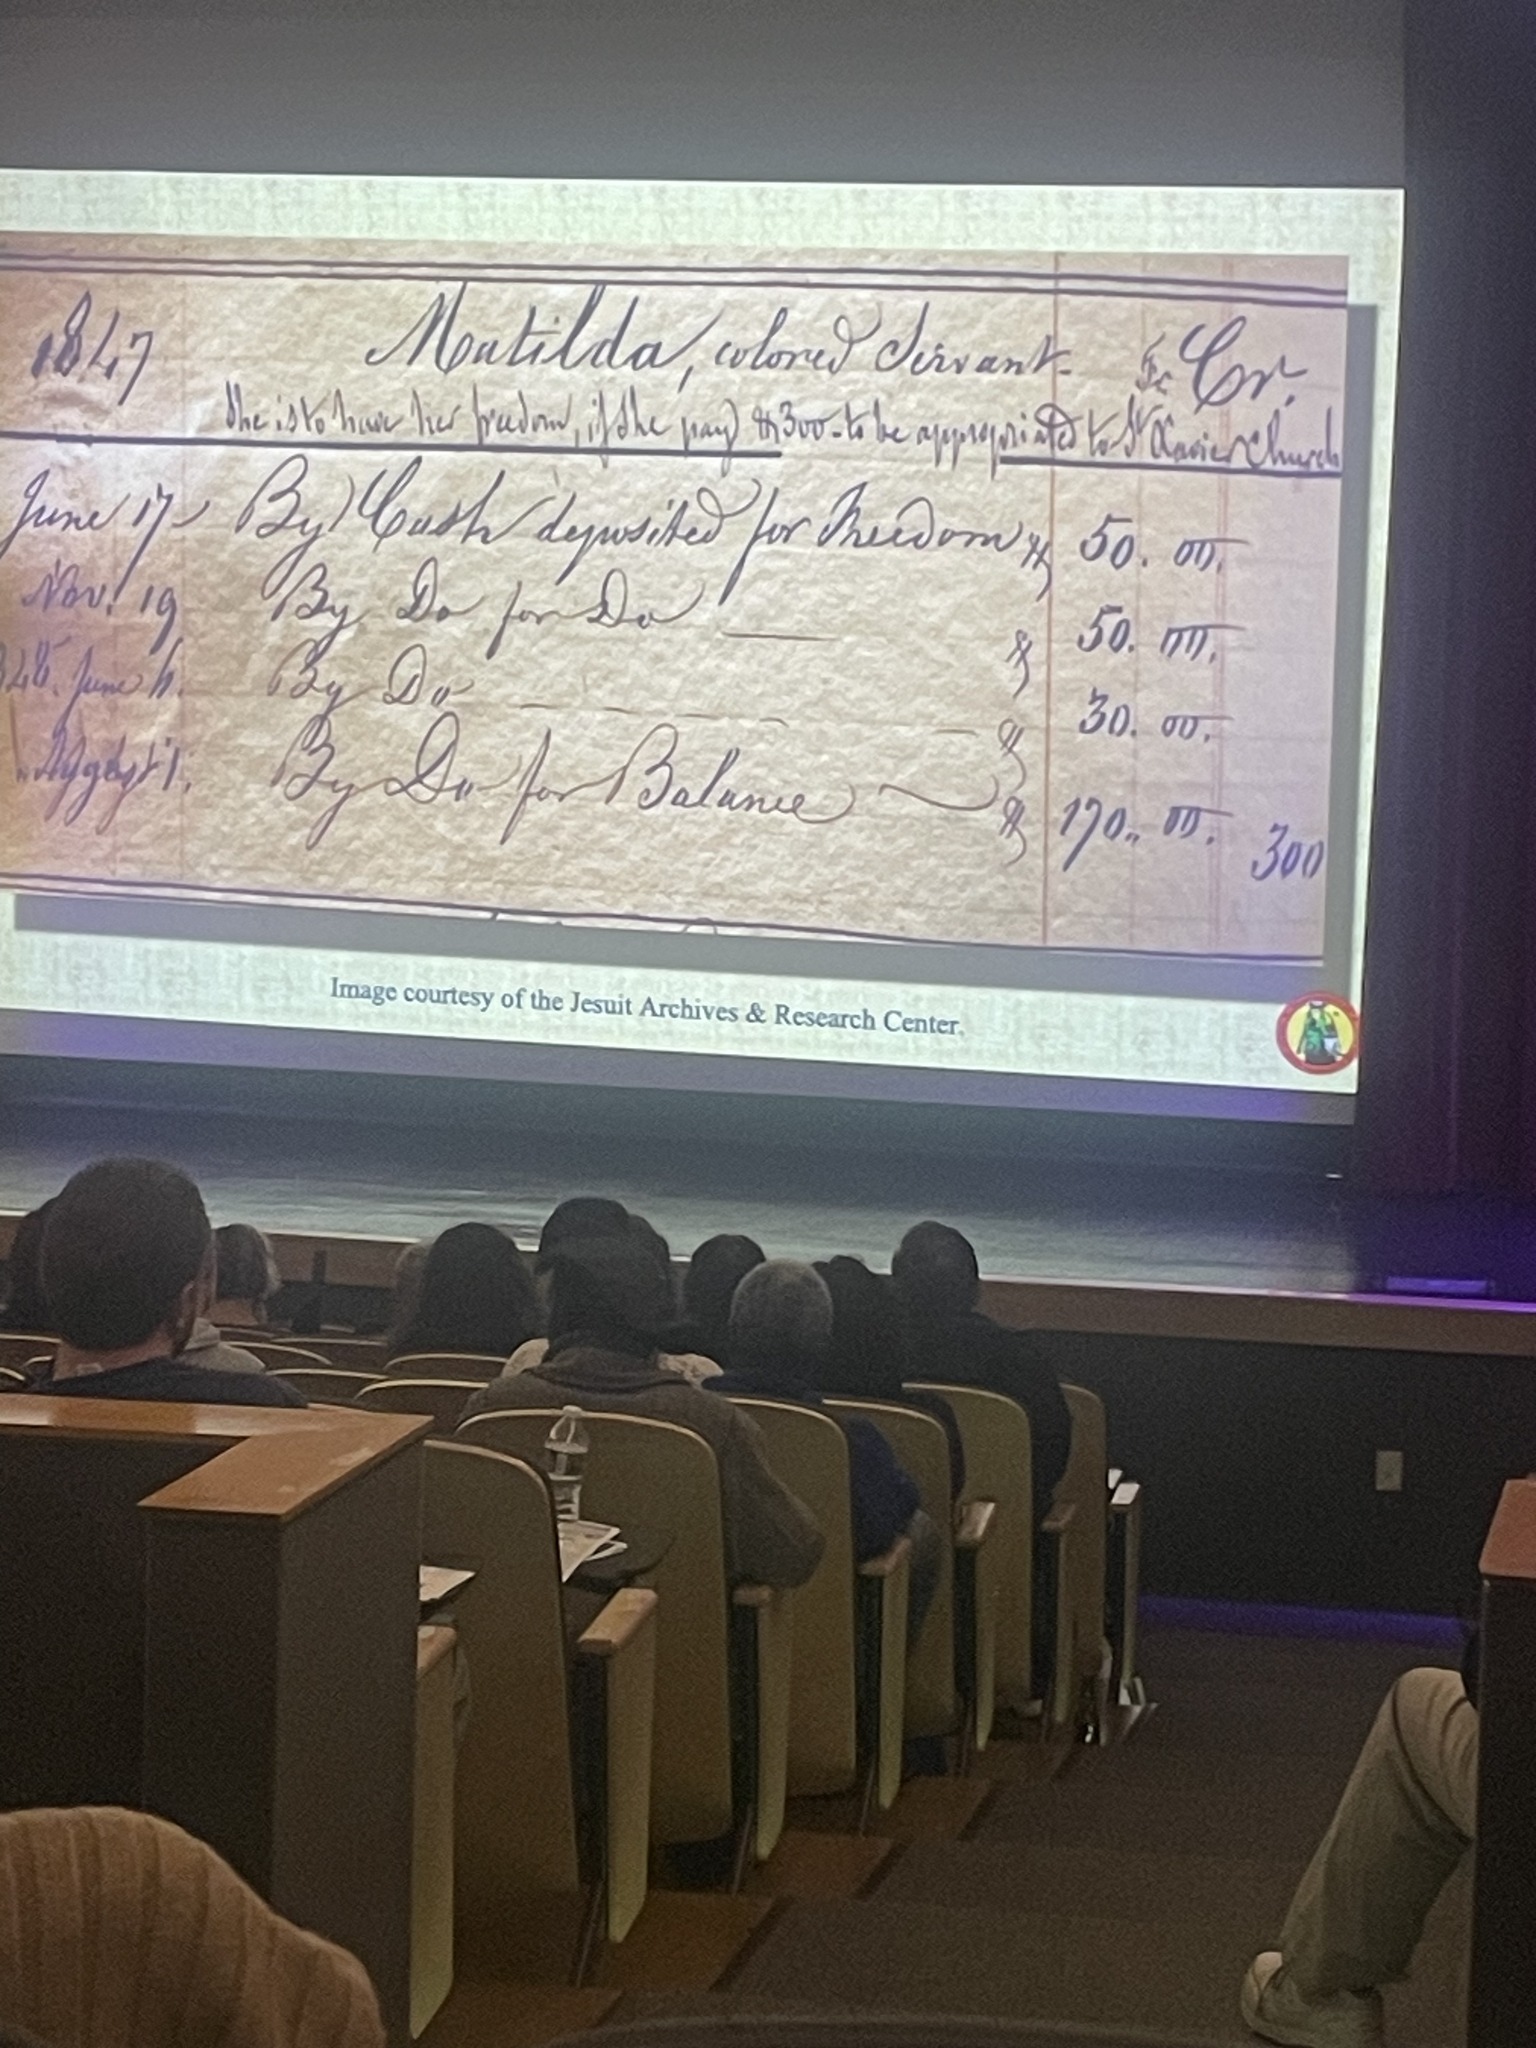 1847 Matilda, colored Servant. Cr.
She is to have her freedom, if she pay $300 to be appropriated to St Xavier Church
June 17 By Cash deposited for Freedom $ 50. 00.
Nov. 19 By Do for Do $ 50. 00.
June By Do $ 30. 00.
August 1. By Do for Balance $ 170.. 00. 300
Image courtesy of the Jesuit Archives & Research Center.